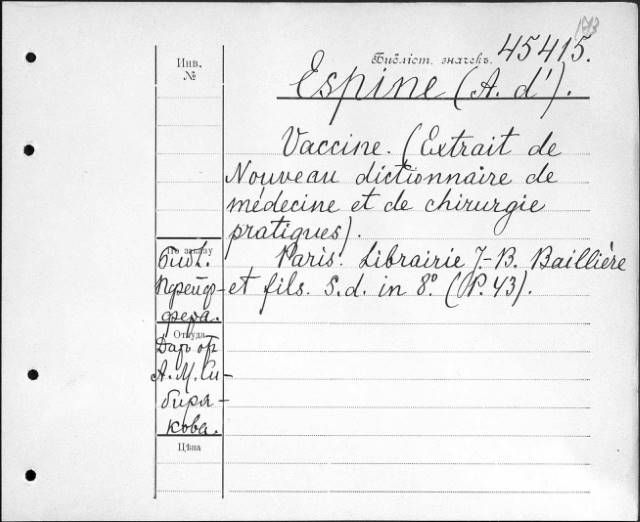 193
Библіот. значекъ. 45415.
Инв.
№
Espine (A. d').
Vaccine. (Extrait de
Nouveau dictionnaire de
médecine et de chirurgie
pratiques).
Paris. Librairie J.-B. Baillière
et fils. S.d. in 8º. (P. 43).
По заказу
Библ.
Пфейф-
фера.
Откуда
Даръ от
А. М. Си-
биря-
кова.
Цѣна